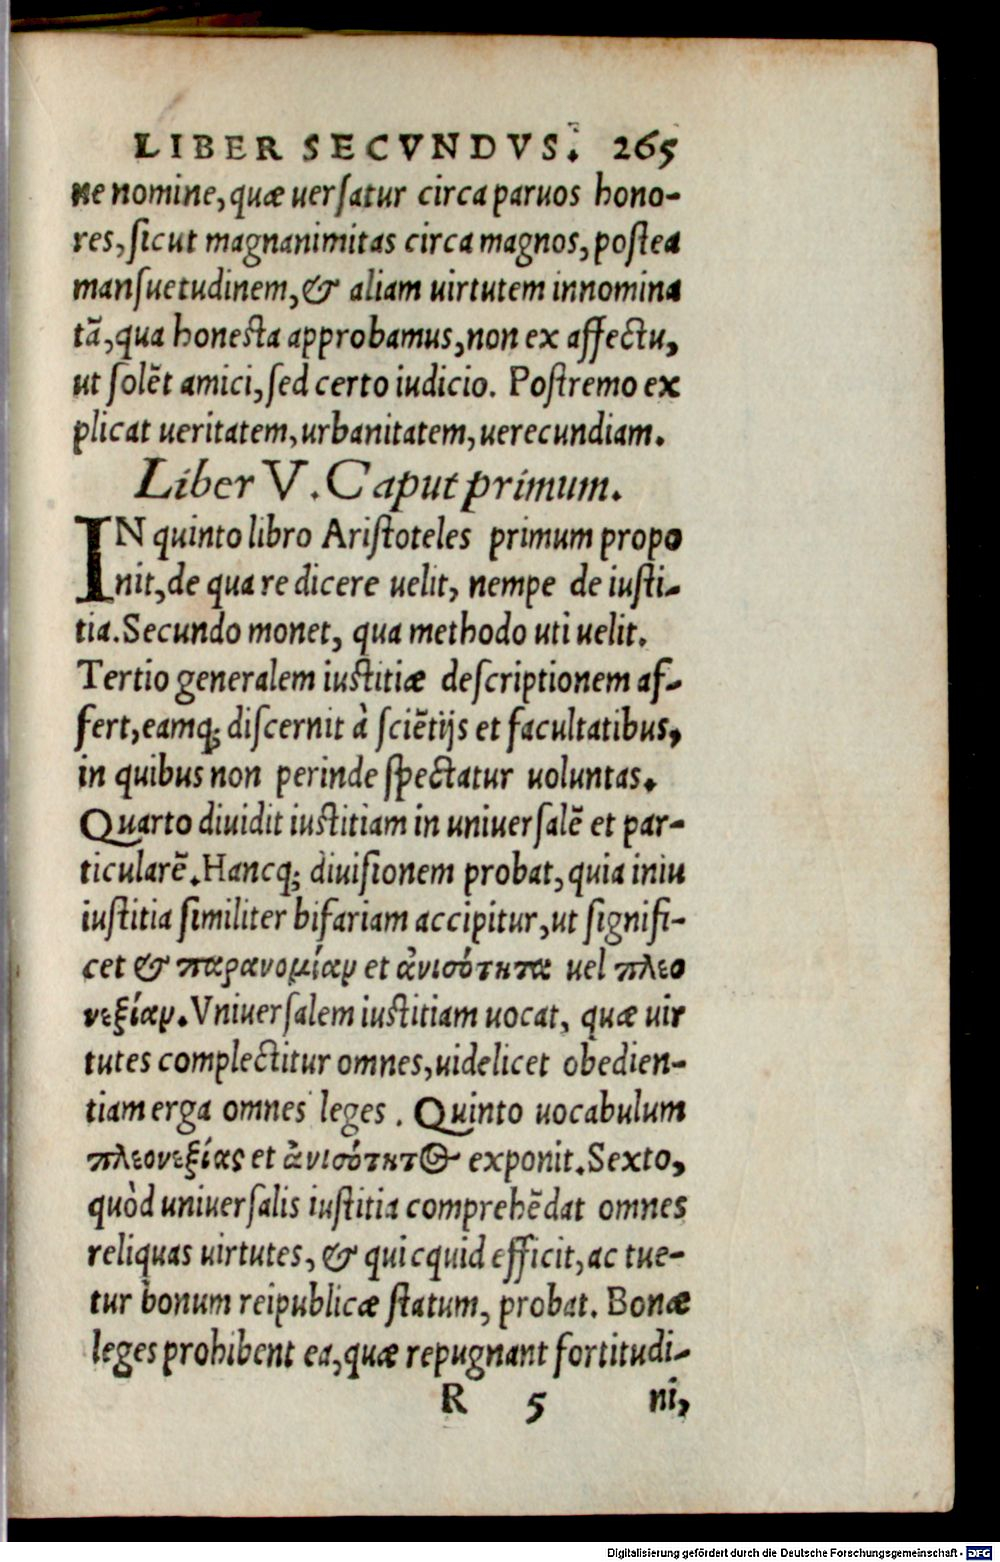 LIBER SECVNDVS. 265
ne nomine, quæ uerſatur circa paruos hono-
res, ſicut magnanimitas circa magnos, poſtea
manſuetudinem, & aliam uirtutem innomina
tā, qua honeſta approbamus, non ex affectu,
ut ſolēt amici, ſed certo iudicio. Poſtremo ex
plicat ueritatem, urbanitatem, uerecundiam.
Liber V. Caput primum.
IN quinto libro Ariſtoteles primum propo
nit, de qua re dicere uelit, nempe de iuſti-
tia. Secundo monet, qua methodo uti uelit.
Tertio generalem iuſtitiæ deſcriptionem af-
fert, eamq; diſcernit à ſciētijs et facultatibus,
in quibus non perinde ſpectatur uoluntas.
Quarto diuidit iuſtitiam in uniuerſalē et par-
ticularē. Hancq; diuiſionem probat, quia iniu
iuſtitia ſimiliter bifariam accipitur, ut ſignifi-
cet & παρανομίαν et ἀνισότητα uel πλεο
νεξίαν. Vniuerſalem iuſtitiam uocat, quæ uir
tutes complectitur omnes, uidelicet obedien-
tiam erga omnes leges. Quinto uocabulum
πλεονεξίας et ἀνισότητΘ exponit. Sexto,
quòd uniuerſalis iuſtitia comprehēdat omnes
reliquas uirtutes, & quicquid efficit, ac tue-
tur bonum reipublicæ ſtatum, probat. Bonæ
leges prohibent ea, quæ repugnant fortitudi-
R 5 ni,
Digitalisierung gefördert durch die Deutsche Forschungsgemeinschaft - DFG